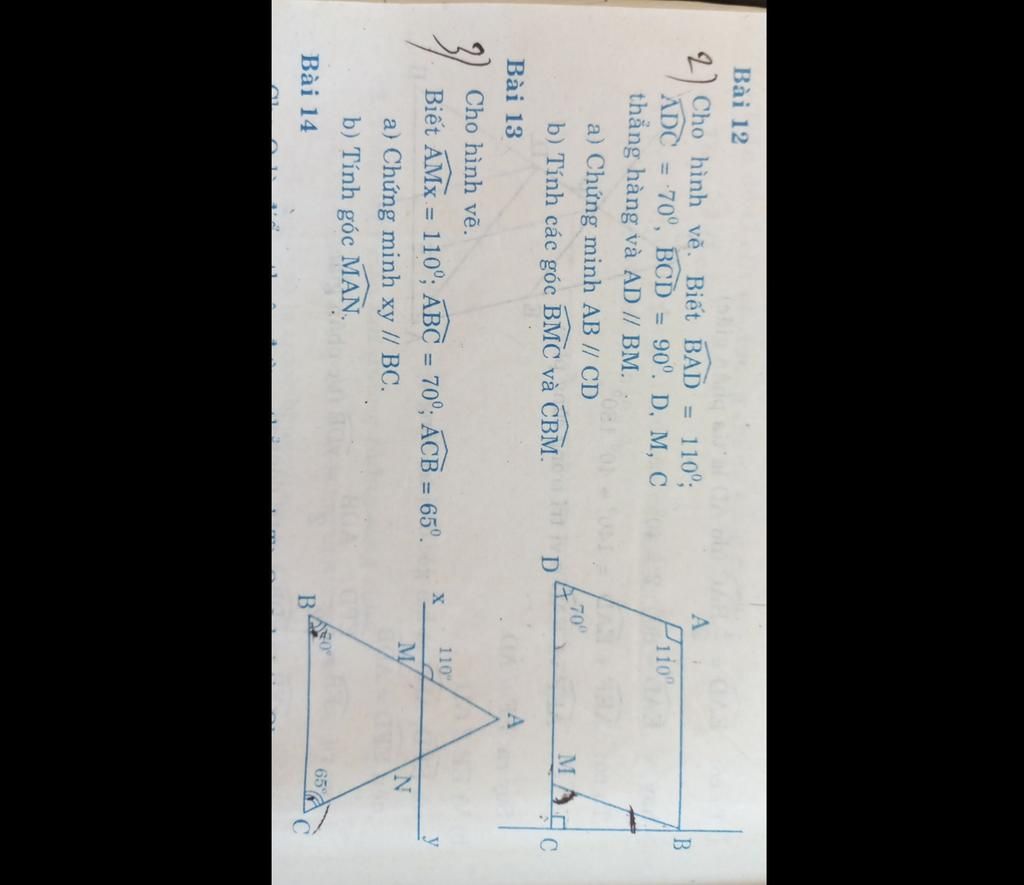 Bài 12
2) Cho hình vẽ. Biết \widehat{BAD} = 110⁰;
\widehat{ADC} = 70⁰, \widehat{BCD} = 90⁰. D, M, C
thẳng hàng và AD // BM.
a) Chứng minh AB // CD
b) Tính các góc \widehat{BMC} và \widehat{CBM}.
A
B
110⁰
70⁰
D
M
C
Bài 13
3) Cho hình vẽ.
Biết \widehat{AMx} = 110⁰; \widehat{ABC} = 70⁰; \widehat{ACB} = 65⁰.
a) Chứng minh xy // BC.
b) Tính góc \widehat{MAN}.
A
x
110⁰
M
N
y
70⁰
65⁰
B
C
Bài 14